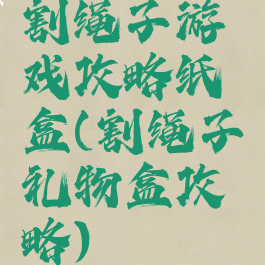 割绳子游
戏攻略纸
盒(割绳子
礼物盒攻
略)